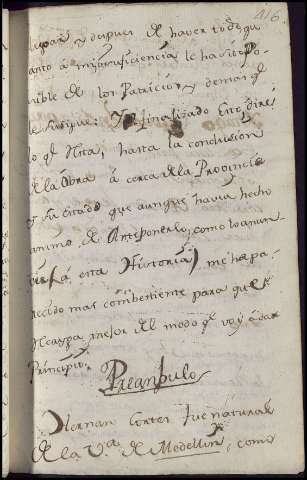 416.
y despues de haver todo qu
anto á mi insuficiencia le ha sido po-
sible de los Patricios y demas qe
le sigue: Y finalizado Esto, diré
lo qe falta, hasta la conclusion
de la Obra á cerca de la Provincia
y su estado que aunque havia hecho
animo de Anteponerlo, como lo anun-
á esta Historia) me ha pa-
recido mas combeniente para que se
mejor del modo qe voy á dar
Principio.
Preambulo
Hernan Cortes fue natural
de la Va. de Medellin, como